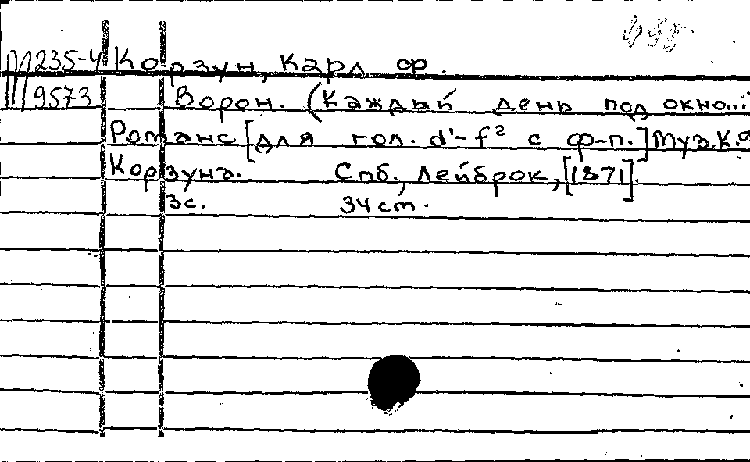 М 235-4 Корзун, Карл Ф.
9573 Ворон. (Каждый день под окно...
Романс [для гол. d'-f² с ф-п.] Муз. К.Ф
Корзуна. Спб., Лейброк, [1871]
3с. 34 ст.